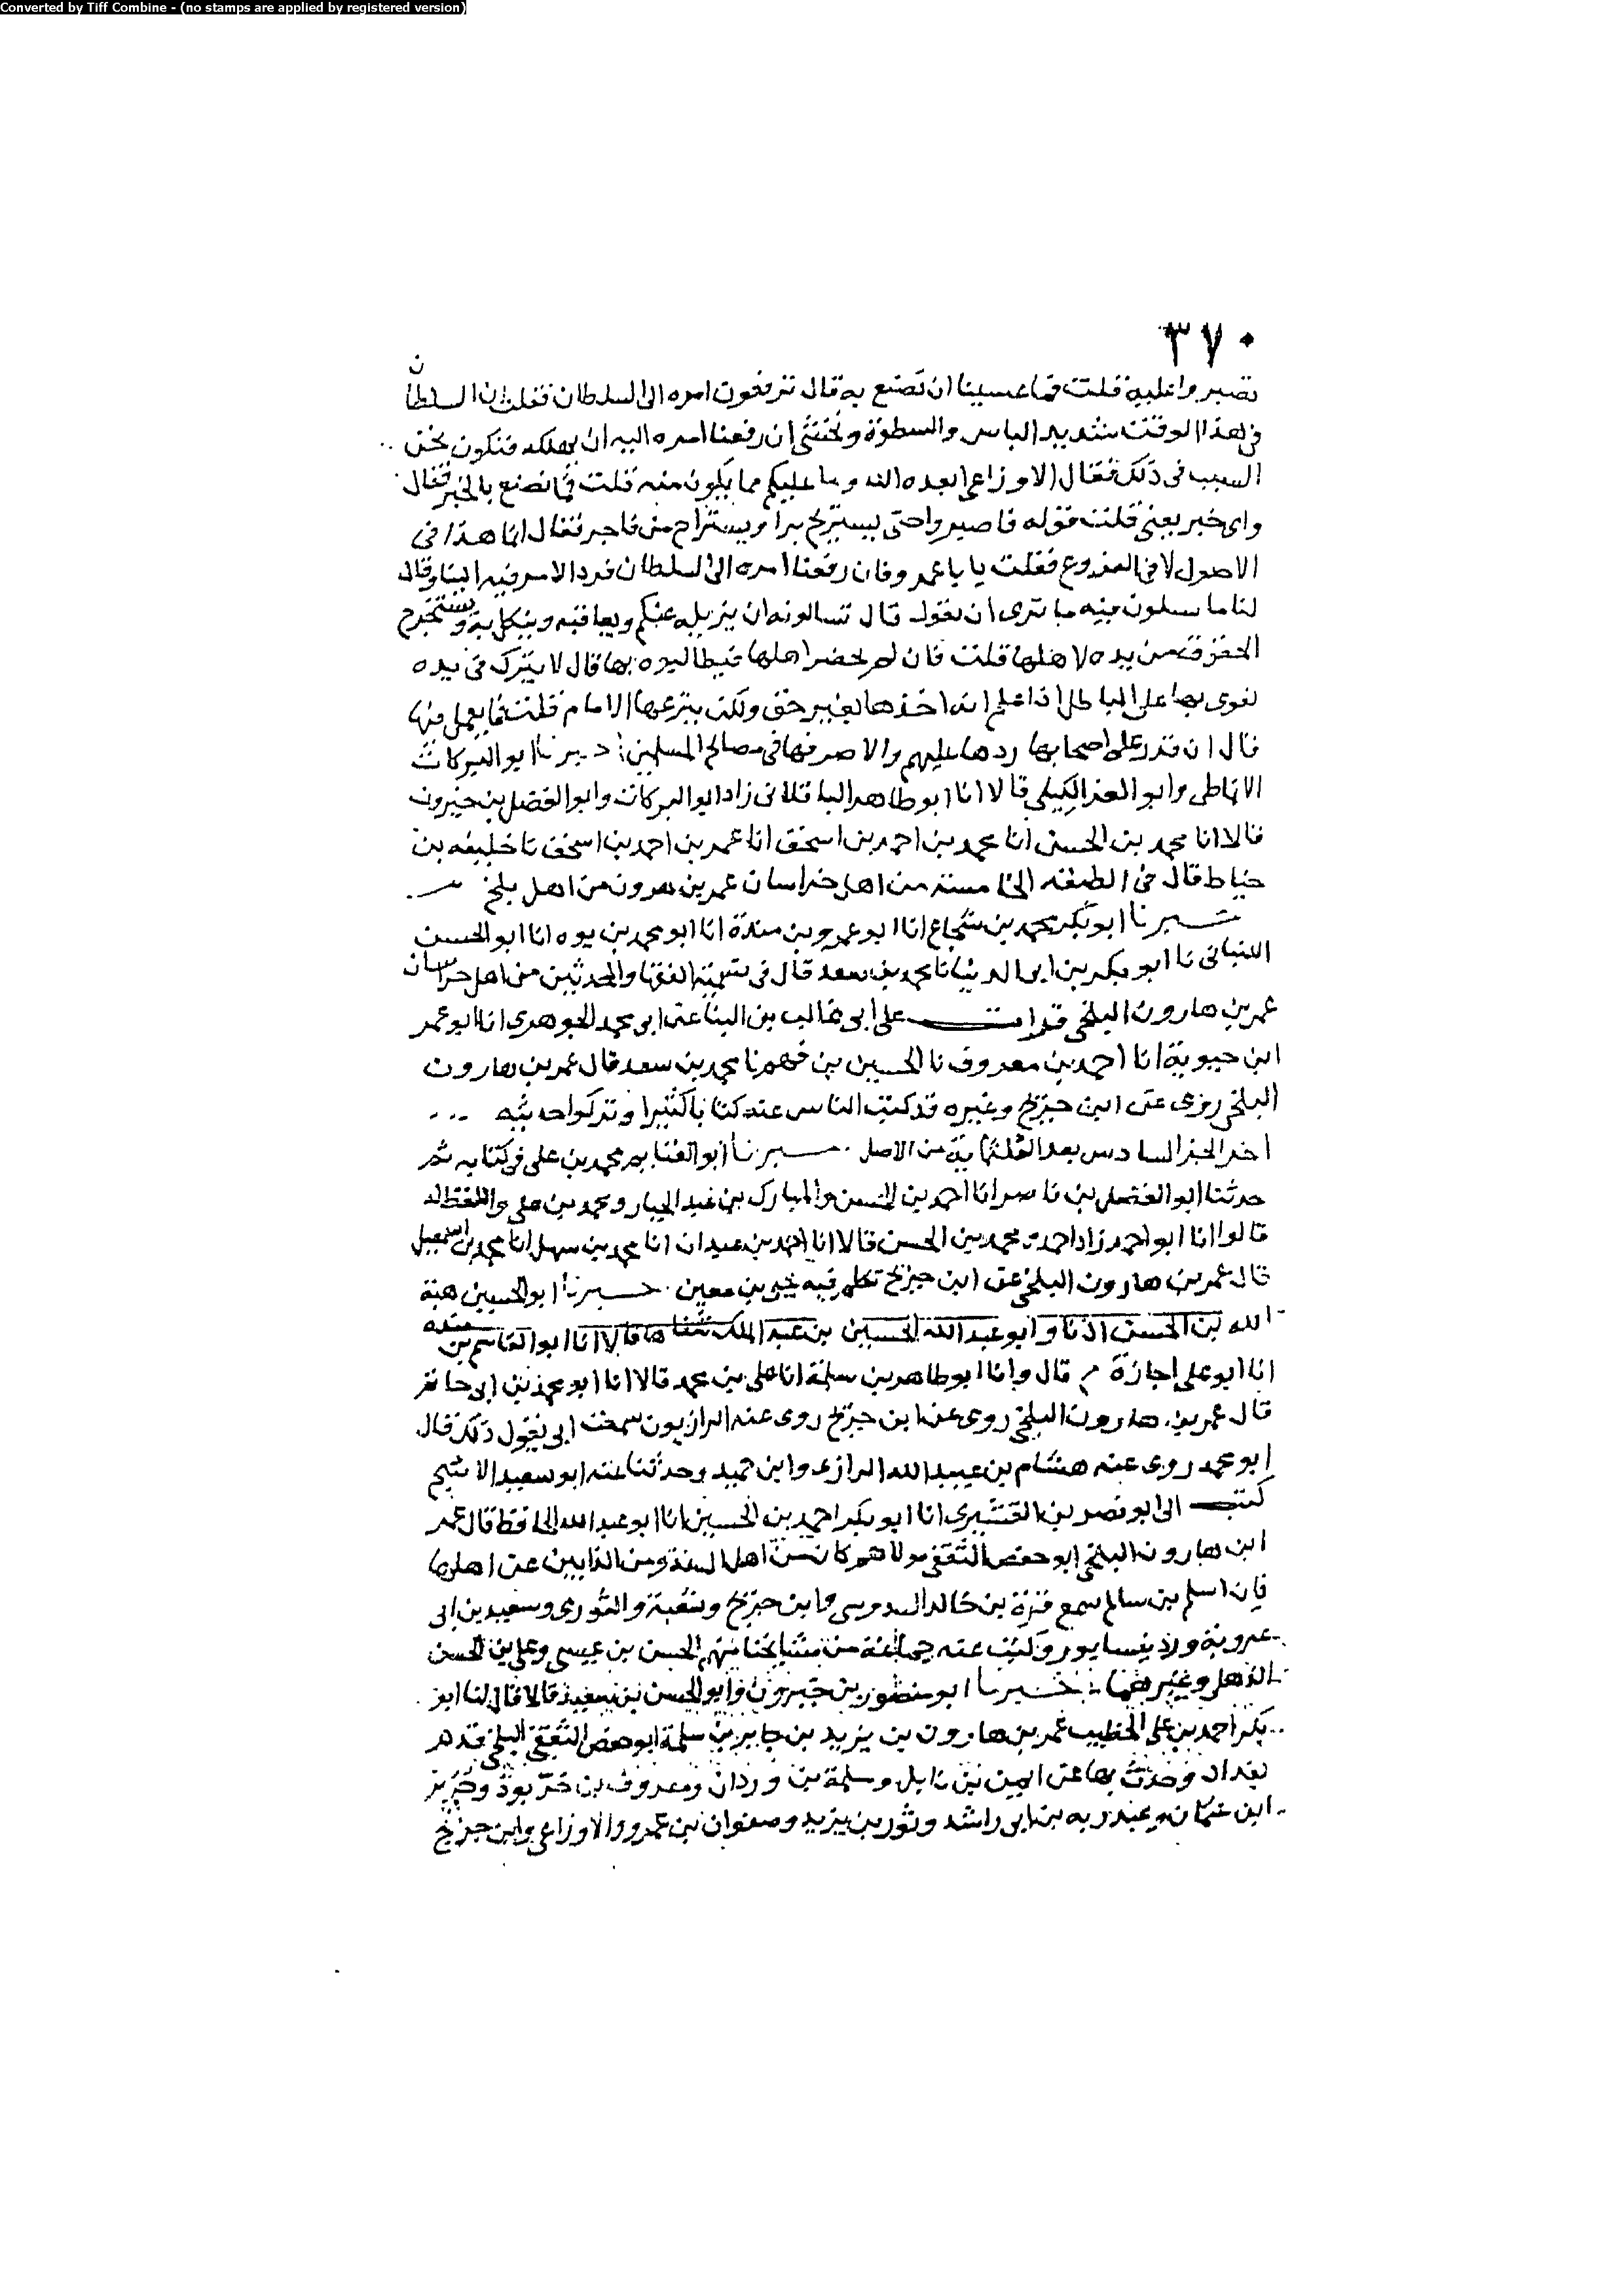 Converted by Tiff Combine - (no stamps are applied by registered version)
٣٧٠
تصبروا عليه قلت فما عسينا ان نصنع به قال ترفعون امره الى السلطان فقلت ان السلطان
فى هذا الوقت شديد الباس والسطوة ونخشى ان رفعنا امره اليه ان يهلكه فنكون نحن
السبب فى ذلك فقال الاوزاعى ابعده الله وما عليكم مما يكون منه قلت فما نصنع بالخبر فقال
واى خبر يعنى قلت قوله فاصبروا حتى يستريح برا ويستراح من فاجر فقال انما هذا فى
الاصول لا فى الفروع فقلت يا با عمرو فان رفعنا امره الى السلطان فرد الامر فيه الينا وقال
لنا ما سلون فيه ما ترى ان نقول قال تسالونه ان يزيله عنكم ويعاقبه وينكل به ويستخرج
الحقوق من يده لاهلها قلت فان لم يحضر اهلها فيطالبوه بها قال لا يترك فى يده
لقوى بها على الباطل اذا علم انه اخذها بغير حق ولكن ينزعها الامام قلت فما يعمل فيها
قال ان قدر على اصحابها ردها عليهم والا صرفها فى مصالح المسلمين اخبرنا ابو البركات
الانماطى وابو العز الكيلى قالا انا ابو طاهر الباقلانى زاد ابو البركات وابو الفضل بن خيرون
قالا انا محمد بن الحسن انا محمد بن احمد بن اسحق انا عمر بن احمد بن اسحق نا خليفه بن
خياط قال فى الطبقه الخامسة من اهل خراسان عمر بن هرون من اهل بلخ
اخبرنا ابو بكر محمد بن شجاع انا ابو عمرو بن مندة انا ابو محمد بن يوه انا ابو الحسن
اللنبانى نا ابو بكر بن ابى الدنيا نا محمد بن سعد قال فى تسمية الفقها والمحدثين من اهل خراسان
عمر بن هارون البلخى قرات على ابى غالب بن البنا عن ابى محمد الجوهرى انا ابو عمر
ابن حيوية انا احمد بن معروف نا الحسين بن فهم نا محمد بن سعد قال عمر بن هارون
البلخى روى عن ابن جريج وغيره قد كتب الناس عنه كتابا كثيرا وتركوا حديثه
اخر الجز السادس بعد الثلثماية من الاصل اخبرنا ابو الغنايم محمد بن على فى كتابه ثم
حدثنا ابو الفضل بن ناصر انا احمد بن الحسن والمبارك بن عبد الجبار ومحمد بن على واللفظ له
قالوا انا ابو احمد زاد احمد ومحمد بن الحسن قالا انا احمد بن عبدان انا محمد بن سهل انا محمد بن اسمعيل
قال عمر بن هارون البلخى عن ابن جريج تكلم فيه يحيى بن معين اخبرنا ابو الحسين هبة
الله بن الحسن اذنا وابو عبد الله الحسين بن عبد الملك شفاها قالا انا ابو القاسم بن منده
انا ابو على اجازة ح قال وانا ابو طاهر بن سلمة انا على بن محمد قالا انا ابو محمد بن ابى حاتم
قال عمر بن هارون البلخى روى عن ابن جريج روى عنه الرازيون سمعت ابى يقول ذلك قال
ابو محمد روى عنه هشام بن عبيد الله الرازى وابن حميد وحدثنا عنه ابو سعيد الاشج
كتب الى ابو نصر بن القشيرى انا ابو بكر احمد بن الحسين انا ابو عبد الله الحافظ قال عمر
ابن هارون البلخى ابو حفص الثقفى مولاهم كان من اهل السنة ومن الذابين عن اهلها
فان اسلم بن سالم سمع قرة بن خالد السدوسى وابن جريج وشعبة والثورى وسعيد بن ابى
عروبة ورد نيسابور وكتب عنه جماعة من مشايخنا منهم الحسن بن عيسى وعلى بن الحسن
الذهلى وغيرهما اخبرنا ابو منصور بن خيرون وابو الحسن بن سعيد قالا قال لنا ابو
بكر احمد بن على الخطيب عمر بن هارون بن يزيد بن جابر بن سلمة ابو حفص الثقفى البلخى قدم
بغداد وحدث بها عن ايمن بن نابل وسلمة بن وردان ومعروف بن خربوذ وحريز
ابن عثمان وعبد ربه بن ابى راشد وثور بن يزيد وصفوان بن عمرو والاوزاعى وابن جريج